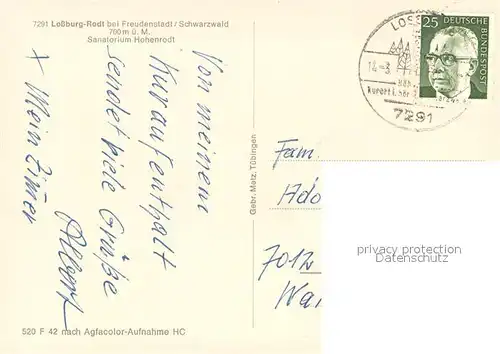 7291 Loßburg-Rodt bei Freudenstadt / Schwarzwald
700 m ü. M.
Sanatorium Hohenrodt
Von meinem
Kuraufenthalt
sendet viele Grüße
Albert
x Mein Zimmer
520 F 42 nach Agfacolor-Aufnahme HC
Gebr. Metz, Tübingen
LOSS
14.-3.
7291
25 DEUTSCHE
BUNDESPOST
Fam.
Ado
7012
Wai
privacy protection
Datenschutz